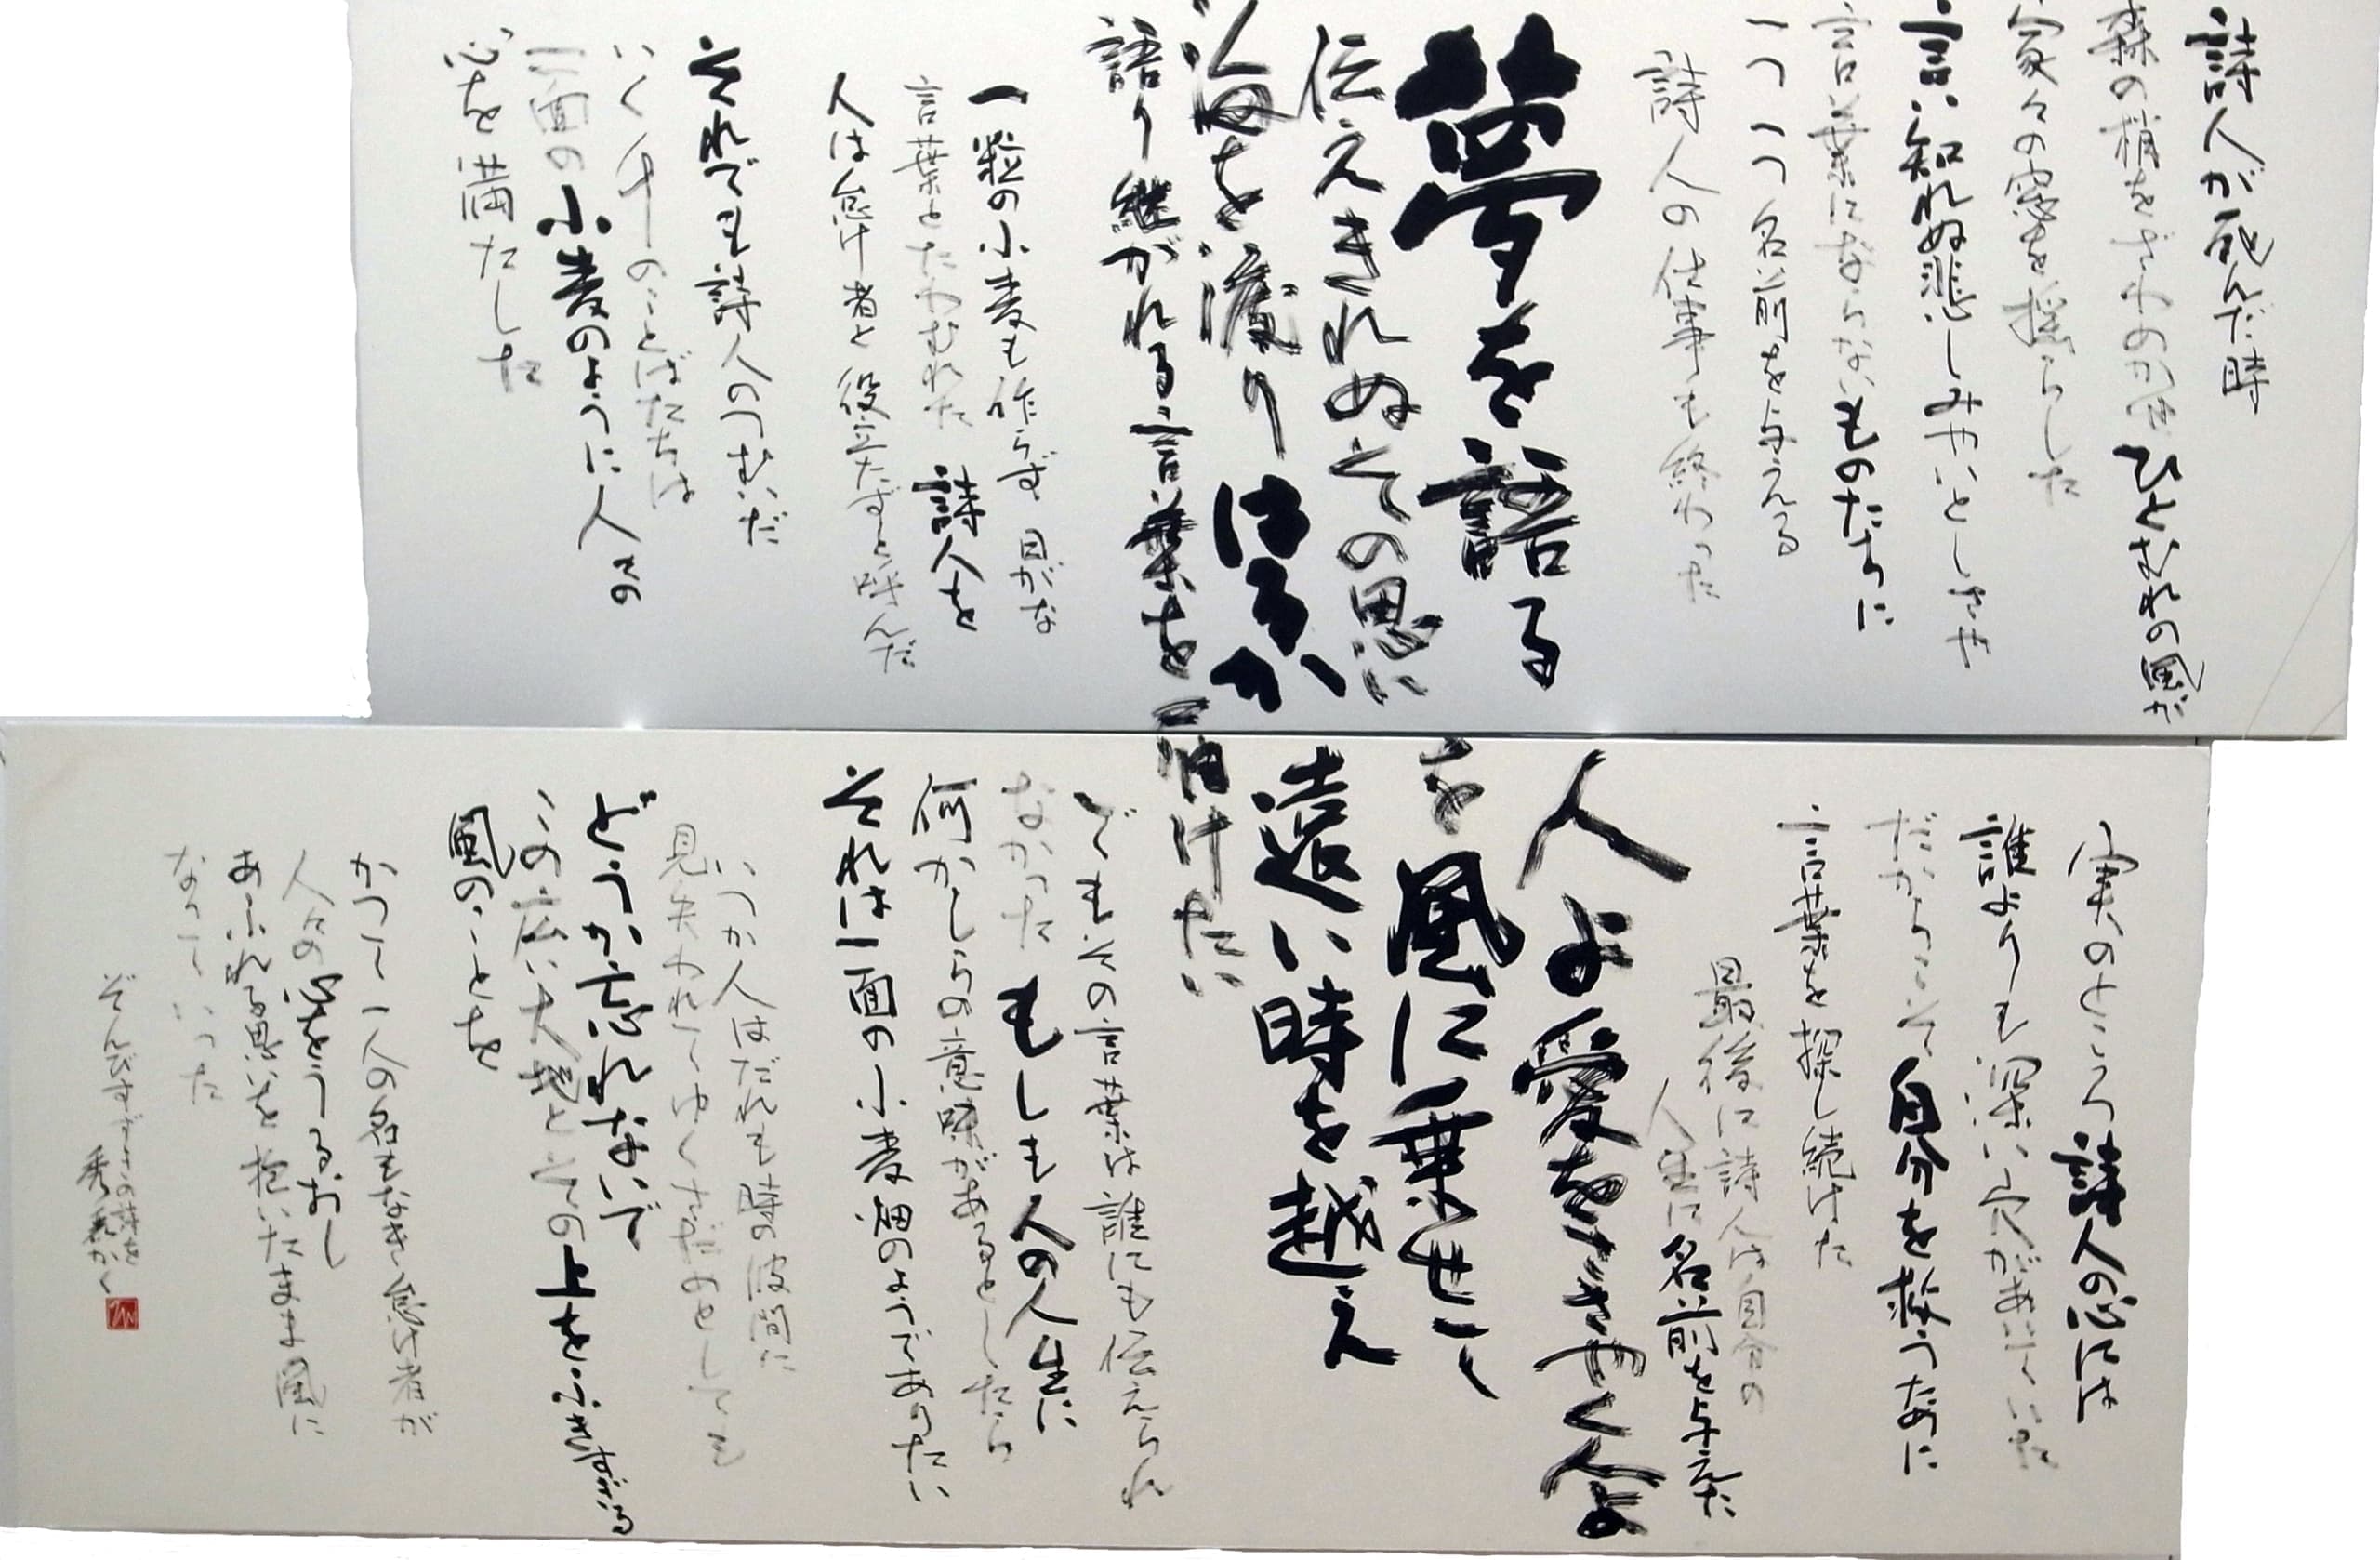 詩人が死んだ時
森の梢をざわめかせ ひとむれの風が
家々の窓を揺らした
言い知れぬ悲しみやいとしさや
言葉にならないものたちに
一つ一つ名前を与える
詩人の仕事も終わった
夢を語る
伝えきれぬその思い
海を渡り はるか
語り継がれる言葉を
一粒の小麦も作らず 日がな
言葉とたわむれた 詩人を
人は怠け者と役立たずと呼んだ
それでも詩人のつむいだ
いく千のことばたちは
一面の小麦のように人々の
心を満たした
実のところ詩人の心には
誰よりも深い穴があいていた
だからこそ 自分を救うために
言葉を探し続けた
最後に詩人は自分の
人生に名前を与えた
人よ愛おしき人よ
を風に乗せて
遠い時を越え
届けたい
でもその言葉は誰にも伝えられ
なかった もしも人の人生に
何かしらの意味があるとしたら
それは一面の小麦畑のようでありたい
いつか人はだれも時の波間に
見失われてゆくさだめとしても
どうか忘れないで
この広い大地とその上を吹きすぎる
風のことを
かつて一人の名もなき怠け者が
人々の心をうるおし
あふれる思いを抱いたまま風に
なっていった